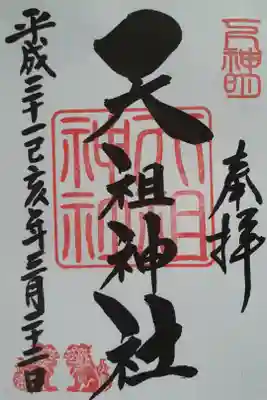 奉拝
天祖神社
天祖
神社
平成三十一己亥年三月二十二日